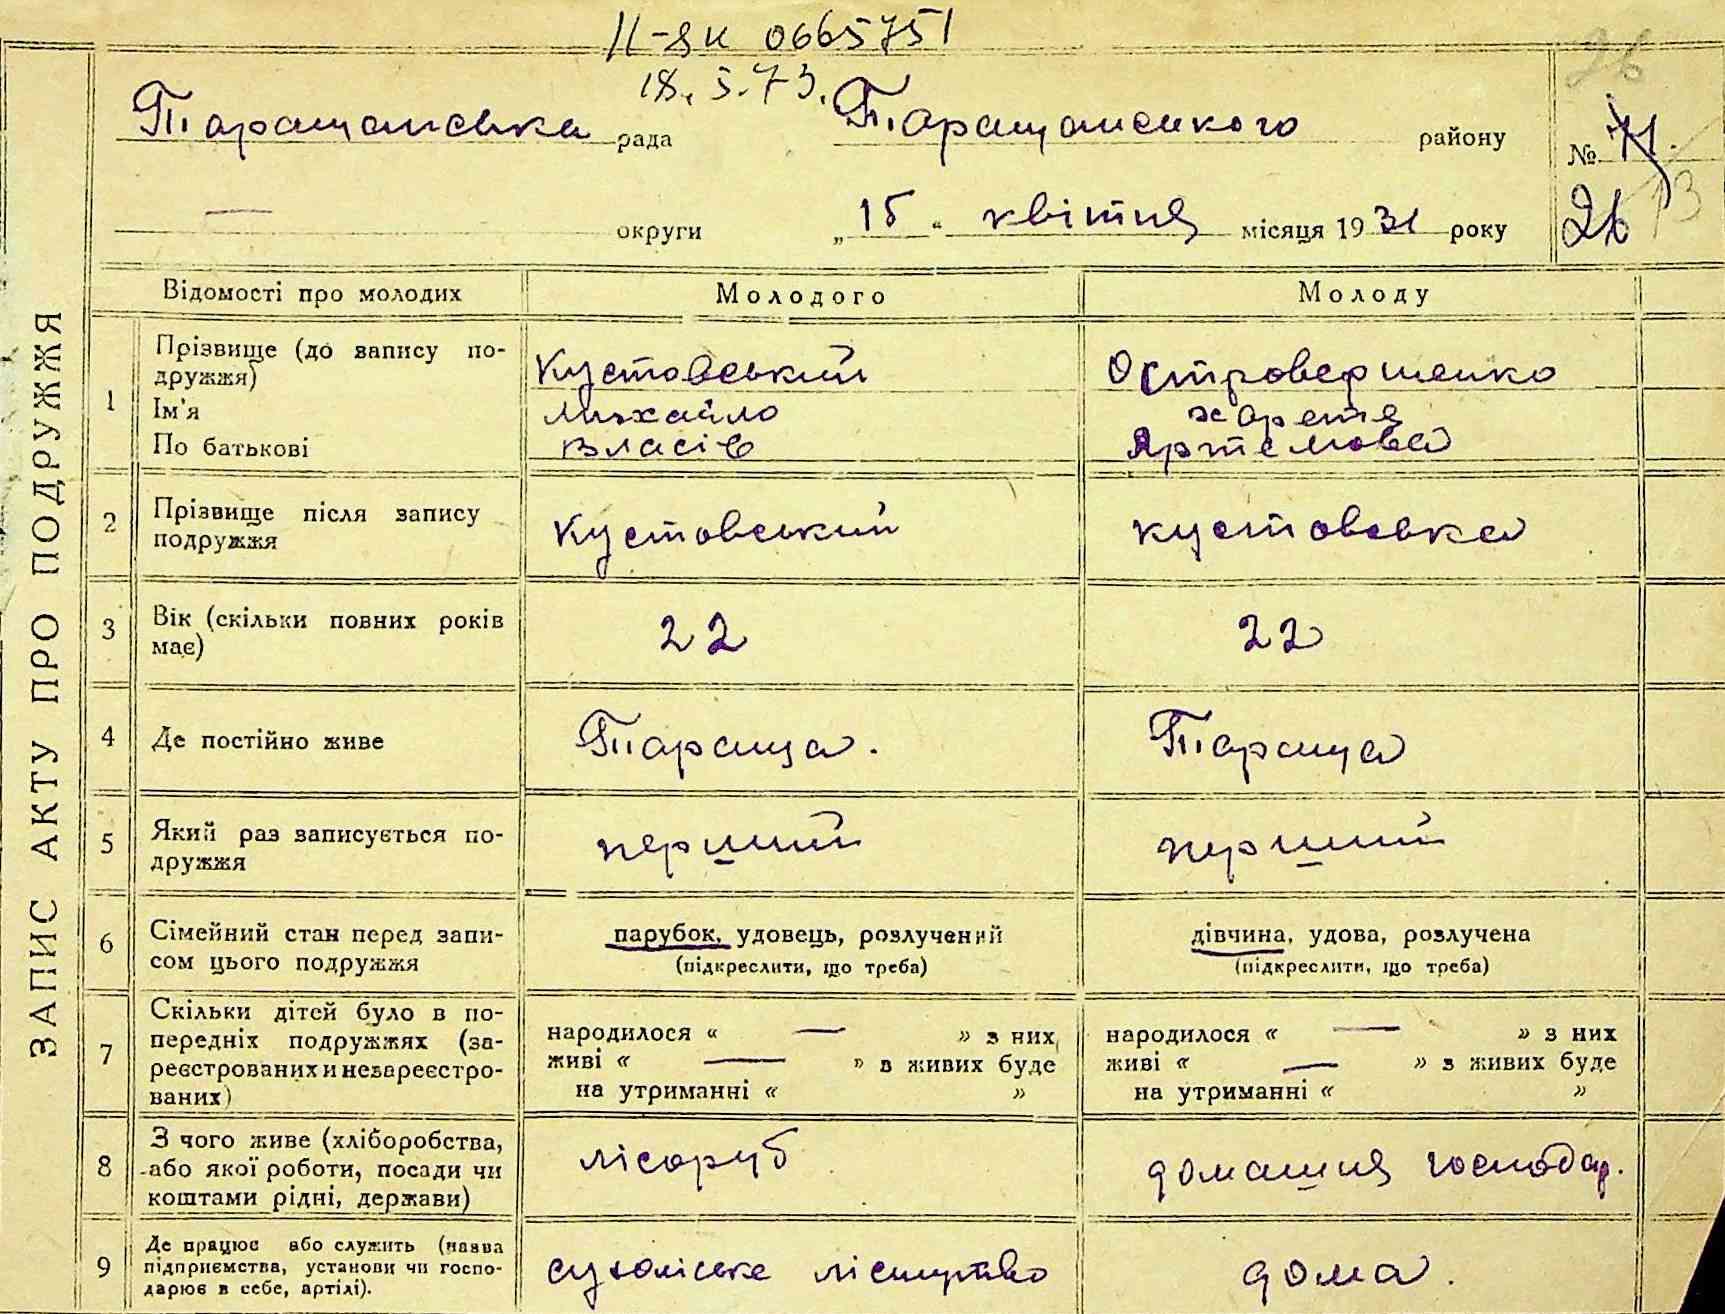 II-ЯК 0665751
18.5.73.
26
Таращанська рада Таращанського району № 71.
26
13
— округи „15“ квітня місяця 1931 року
ЗАПИС АКТУ ПРО ПОДРУЖЖЯ
Відомості про молодих Молодого Молоду
1 Прізвище (до запису по-
дружжя) Кустовський Островершенко
Ім'я Михайло
По батькові Власів Артемова
2 Прізвище після запису
подружжя Кустовський кустовська
3 Вік (скільки повних років
має) 22 22
4 Де постійно живе Тараща. Тараща
5 Який раз записується по-
дружжя перший перший
6 Сімейний стан перед запи-
сом цього подружжя парубок, удовець, розлучений дівчина, удова, розлучена
(підкреслити, що треба) (підкреслити, що треба)
7 Скільки дітей було в по-
передніх подружжях (за-
реєстрованих и незареєстро-
ваних)
народилося « — » з них народилося « — » з них
живі « — » в живих буде живі « — » з живих буде
на утриманні « » на утриманні « »
8 З чого живе (хліборобства,
або якої роботи, посади чи
коштами рідні, держави) лісоруб домашня господар.
9 Де працює або служить (назва
підприємства, установи чи госпо-
дарює в себе, артілі). сухоліське лісництво дома.